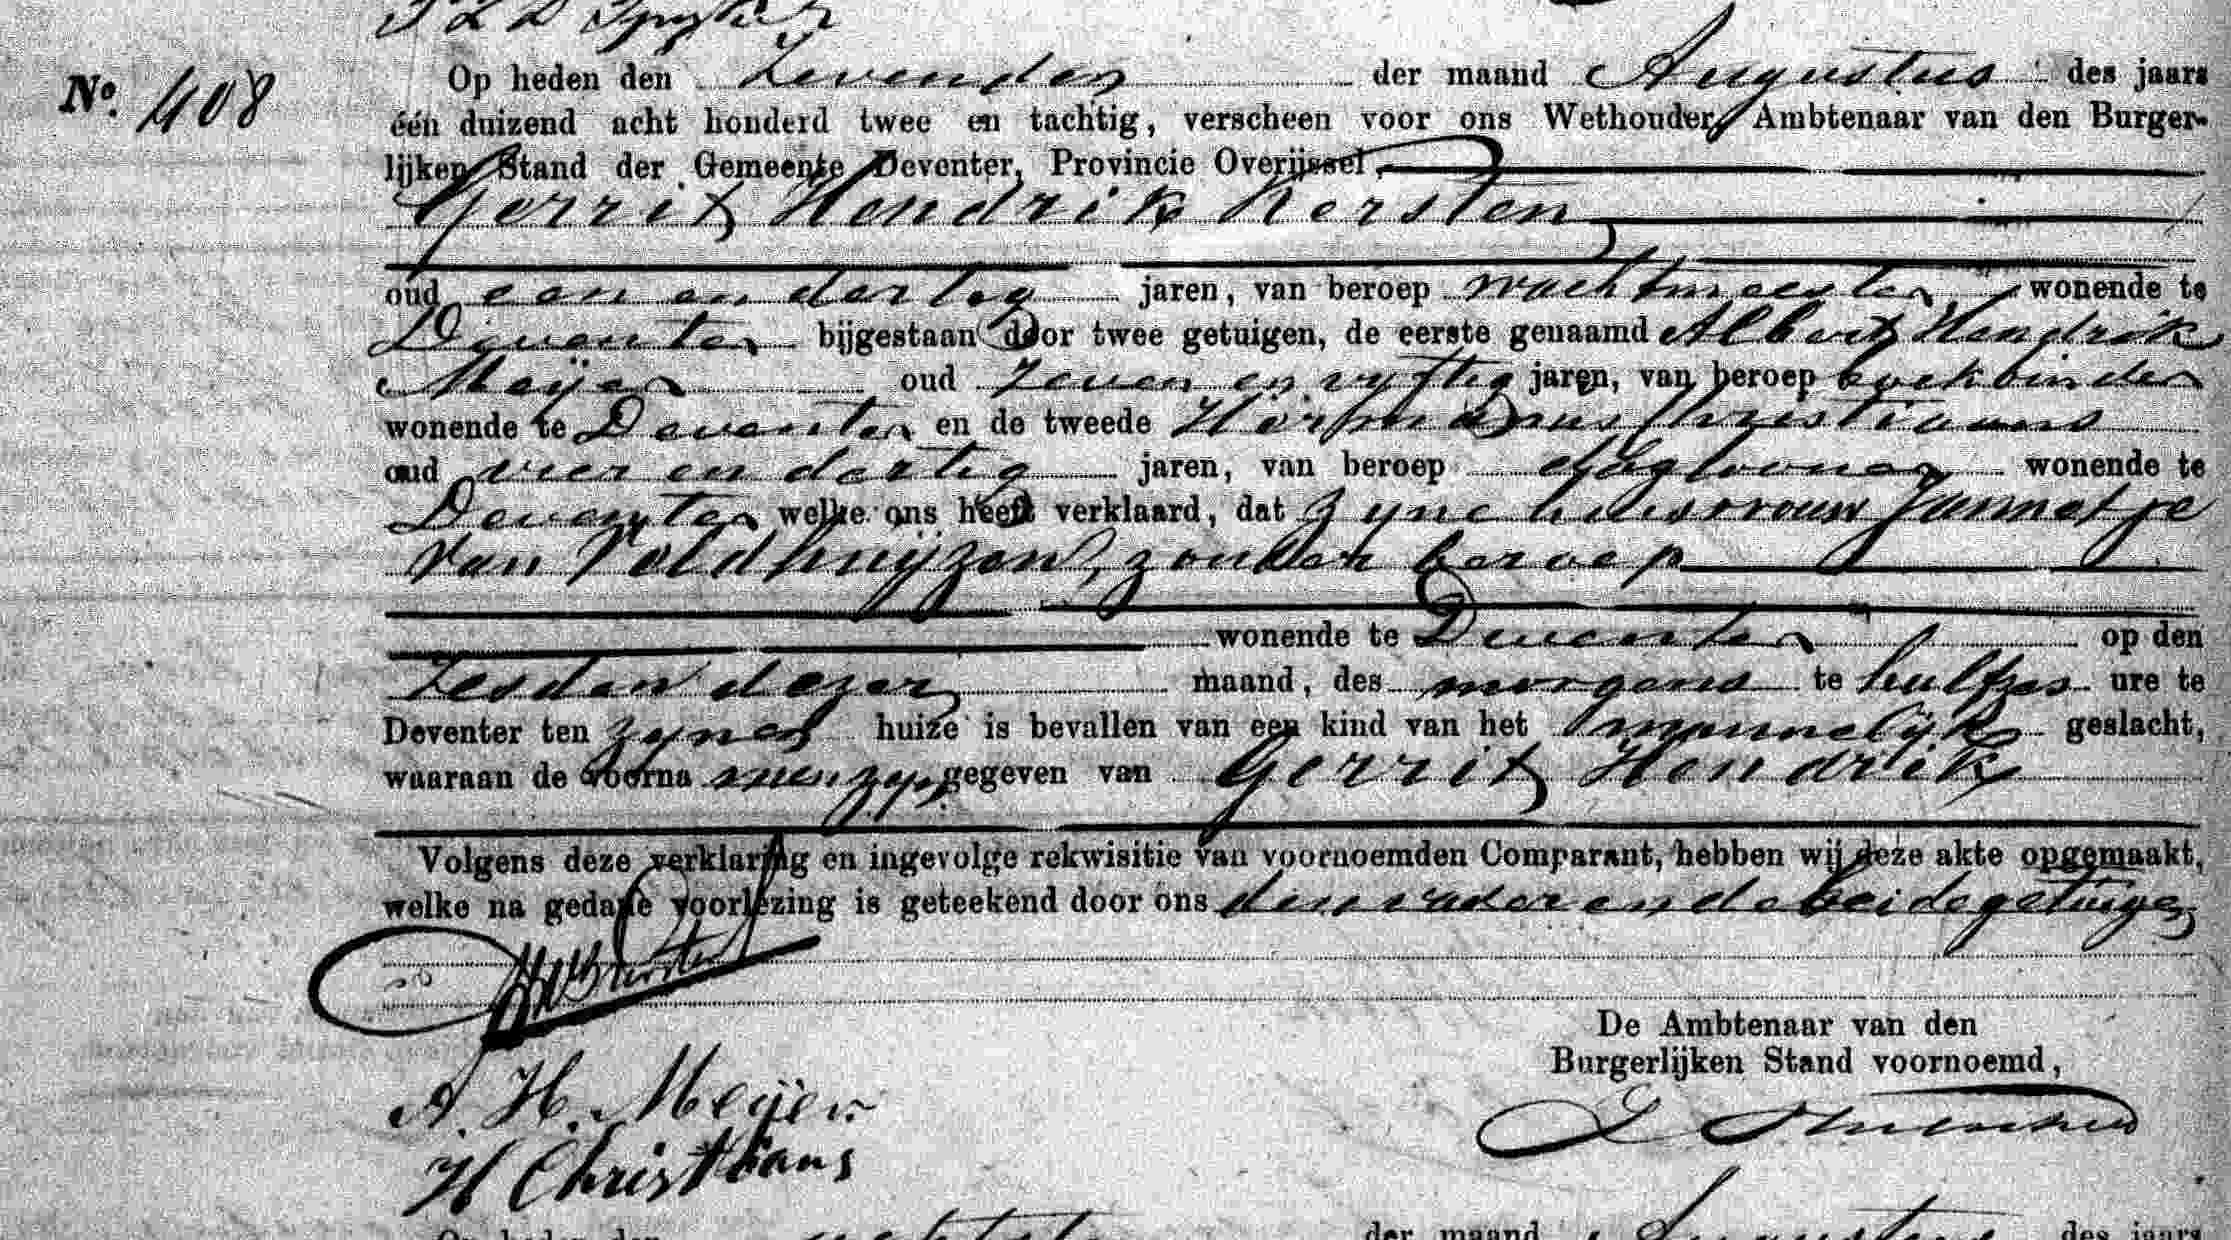 No. 408
Op heden den Zevenden der maand Augustus des jaars
één duizend acht honderd twee en tachtig, verscheen voor ons Wethouder, Ambtenaar van den Burger-
lijken Stand der Gemeente Deventer, Provincie Overijssel,
Gerrit Hendrik Kersten
oud een en dertig jaren, van beroep wachtmeester, wonende te
Deventer bijgestaan door twee getuigen, de eerste genaamd Albert Hendrik
Meijer oud zeven en vyftig jaren, van beroep boekbinder
wonende te Deventer en de tweede Hermanus Christiaans
oud vier en dertig jaren, van beroep dagloner wonende te
Deventer welke ons heeft verklaard, dat zyne huisvrouw Jannetje
van Veldhuijzen, zonder beroep
wonende te Deventer op den
Zesden dezer maand, des morgens te half zes ure te
Deventer ten zynen huize is bevallen van een kind van het mannelijk geslacht,
waaraan de voorna men zyn gegeven van Gerrit Hendrik
Volgens deze verklaring en ingevolge rekwisitie van voornoemden Comparant, hebben wij deze akte opgemaakt,
welke na gedane voorlezing is geteekend door ons den vader en de beide getuigen
De Ambtenaar van den
Burgerlijken Stand voornoemd,
A. H. Meijer
H Christiaans
Op heden den der maand Augustus des jaars